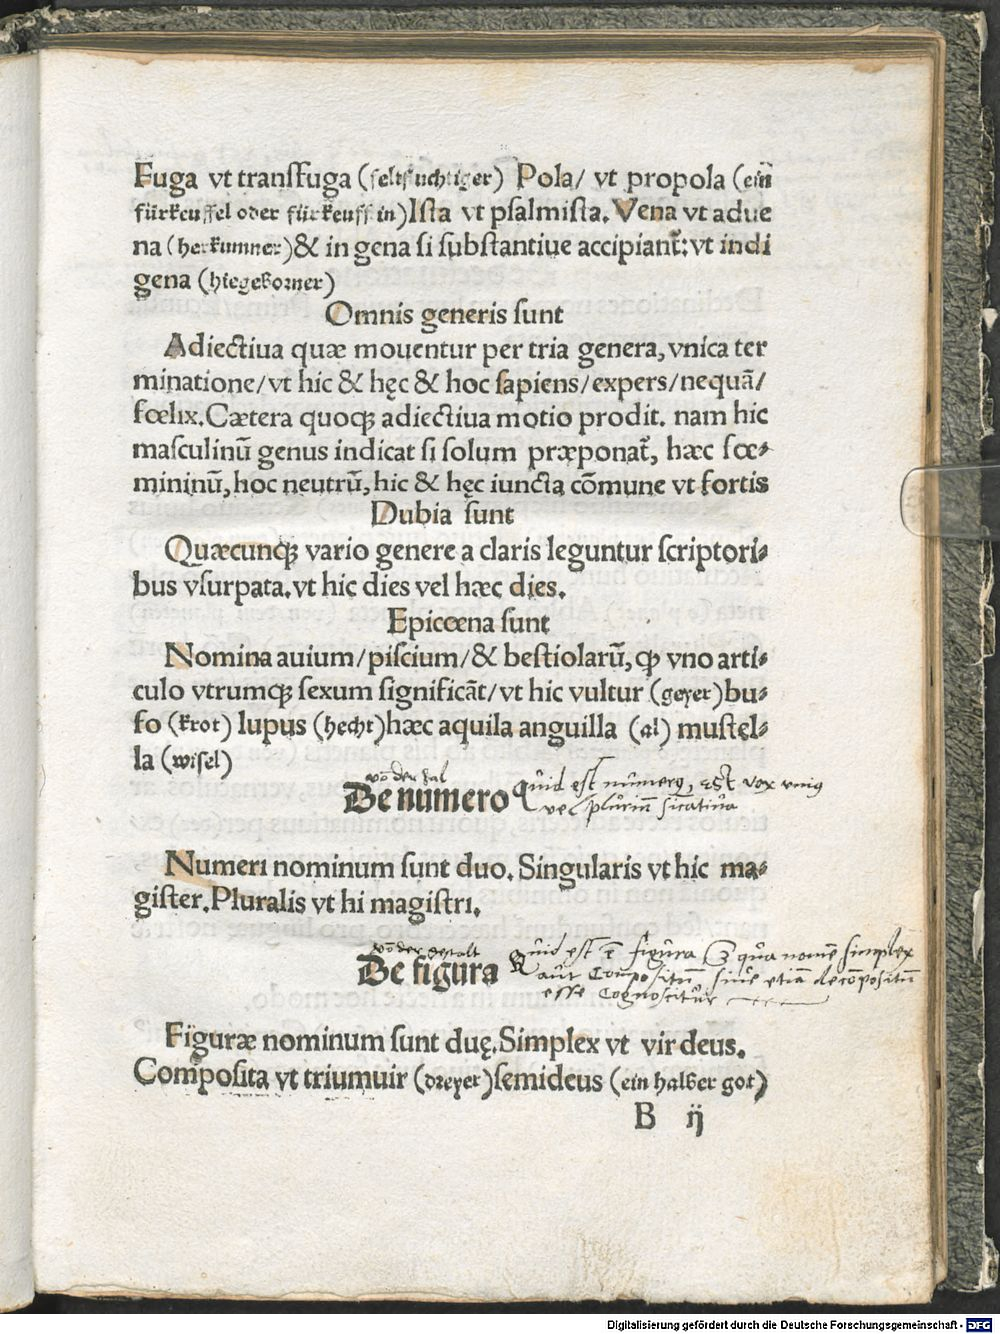 Fuga vt transfuga (feltfluchtiger) Pola/ vt propola (ein̄
fürkeuffel oder fürkeuffin) Ista vt psalmista. Vena vt adue
na (herkumner) & in gena si substantiue accipiant᷑: vt indi
gena (hiegeborner)
Omnis generis sunt
Adiectiua quæ mouentur per tria genera, vnica ter
minatione/ vt hic & hęc & hoc sapiens/ expers/ nequā/
fœlix. Cætera quoqꝫ adiectiua motio prodit. nam hic
masculinū genus indicat si solum præponat᷑, hæc fœ⸗
mininū, hoc neutrū, hic & hęc iuncta cōmune vt fortis
Dubia sunt
Quæcunqꝫ vario genere a claris leguntur scriptori⸗
bus vsurpata. vt hic dies vel hæc dies.
Epicœna sunt
Nomina auium/ piscium/ & bestiolarū, qꝫ vno arti⸗
culo vtrumqꝫ sexum significāt/ vt hic vultur (geyer) bu⸗
fo (krot) lupus (hecht) hæc aquila anguilla (al) mustel⸗
la (wisel)
vō der zal
De numero Quid est nūmerꝯ, Est vox vniꝯ
vel plurium
Numeri nominum sunt duo. Singularis vt hic ma⸗
gister. Pluralis vt hi magistri.
vō der gestalt
Quid est figura qua nomē simplex
De figura aut Compositum siue etiā decōpositum
esse Cognoscitur
Figuræ nominum sunt duę. Simplex vt vir deus.
Composita vt triumuir (dreyer) semideus (ein halber got)
B ij
Digitalisierung gefördert durch die Deutsche Forschungsgemeinschaft - DFG